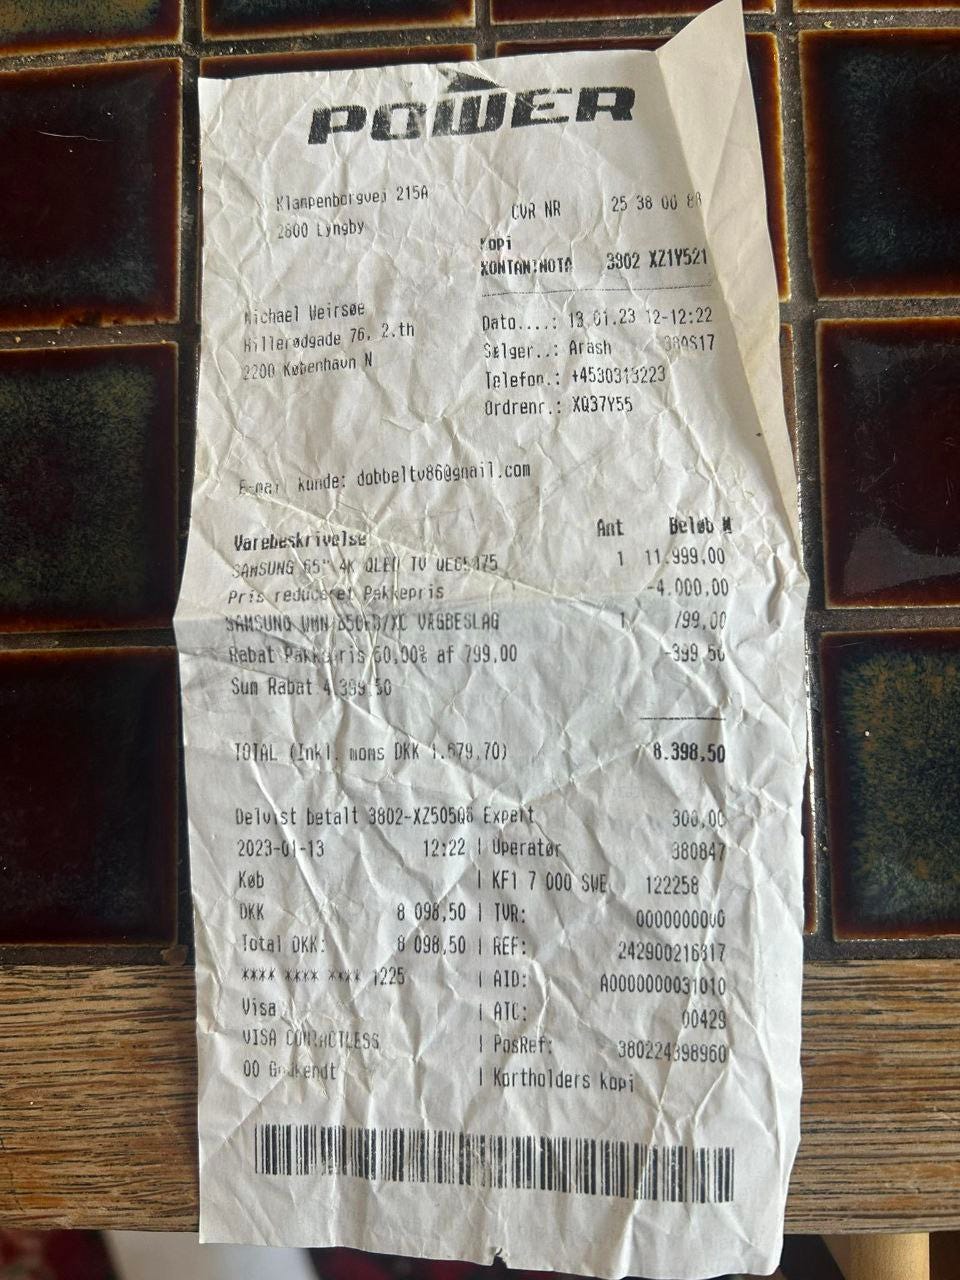 POWER
Klampenborgvej 215A
2800 Lyngby
CVR NR 25 38 00 88
Kopi
KONTANTNOTA 3802 XZ1Y521
Michael Weirsøe
Hillerødgade 76, 2.th
2200 København N
Dato....: 13.01.23 12-12:22
Sælger..: Arash 380S17
Telefon.: +4530313223
Ordrenr.: XQ37Y55
E-mail kunde: dobbeltv86@gmail.com
Varebeskrivelse Ant Beløb M
SAMSUNG 65" 4K QLED TV 1 11.999,00
Pris reduceret Pakkepris -4.000,00
SAMSUNG VÆGBESLAG 1 799,00
Rabat Pakkepris 50,00% af 799,00 -399,50
Sum Rabat 4.399,50
TOTAL (Inkl. moms DKK 1.679,70) 8.398,50
Delvist betalt 3802-XZ505Q6 Expert 300,00
2023-01-13 12:22 | Operatør 380847
Køb | KF1 7 000 SWE 122258
DKK 8 098,50 | TVR: 0000000000
Total DKK: 8 098,50 | REF: 242900216317
**** **** **** 1225 | AID: A0000000031010
Visa | ATC: 00429
VISA CONTACTLESS | PosRef: 380224398960
00 Godkendt | Kortholders kopi